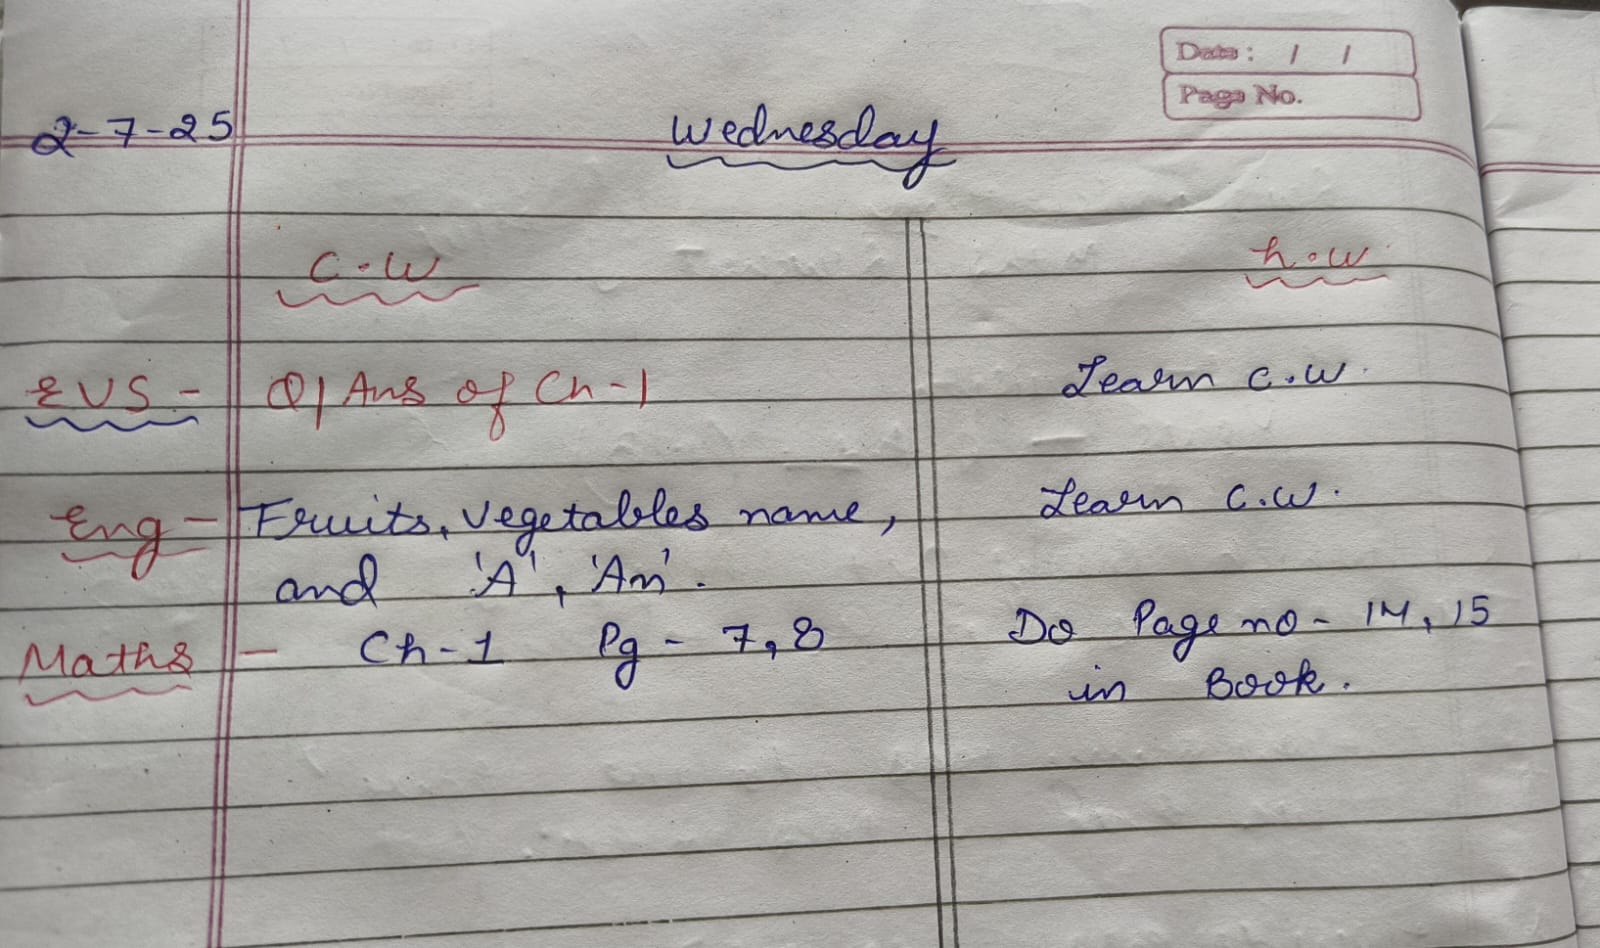 Date: / /
Page No.
2-7-25 Wednesday
C.W h.w.
EVS - Q/Ans of Ch-1 Learn C.W.
Eng - Fruits, Vegetables name, Learn C.W.
and 'A', 'An'.
Maths - Ch-1 Pg - 7,8 Do Page no - 14, 15
in Book.